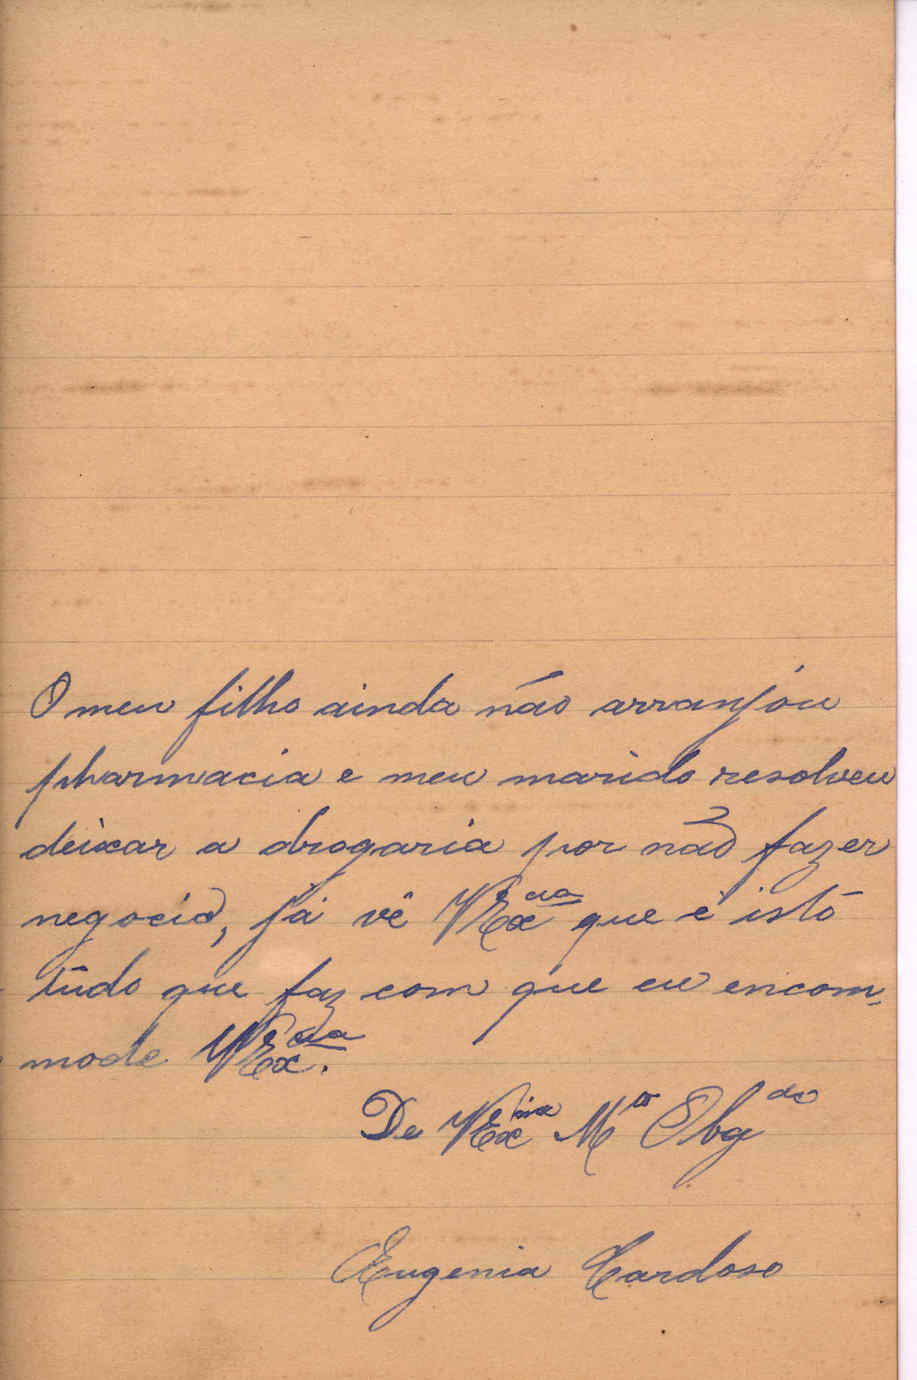 O meu filho ainda não arranjou
pharmacia e meu marido resolveu
deixar a drogaria por não fazer
negocio, já vê VExcia que é isto
tudo que faz com que eu encom-
mode VExcia.
De VExcia Mto Obgdo
Eugenia Cardoso